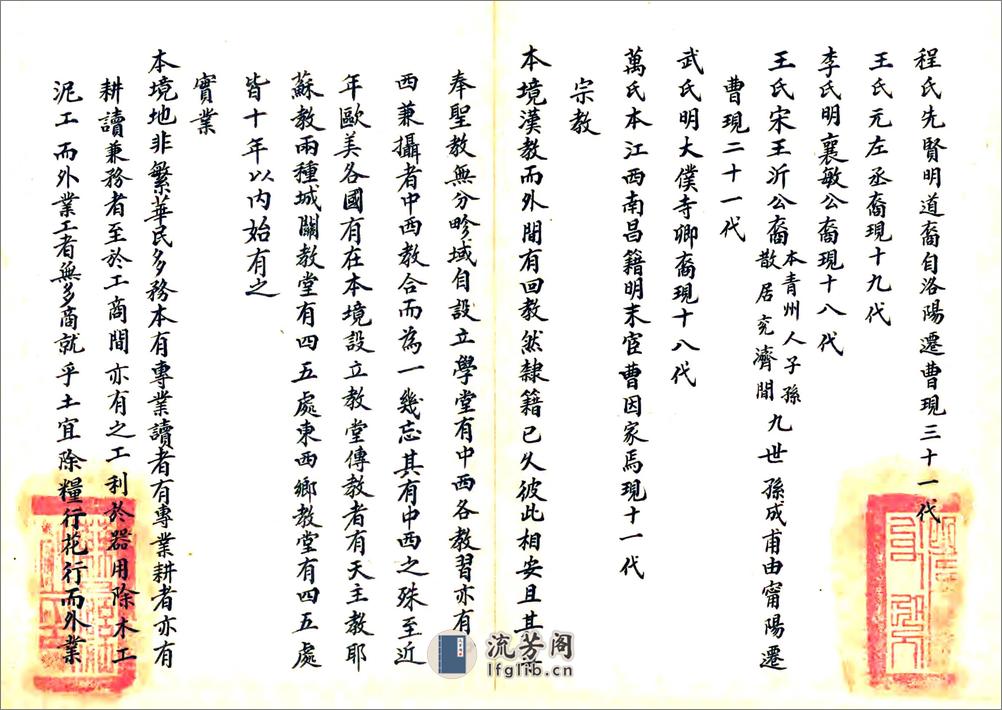 程氏先賢明道裔自洛陽遷曹現三十一代
王氏元左丞裔現十九代
李氏明襄敏公裔現十八代
王氏宋王沂公裔本青州人子孫散居兖濟間九世孫成甫由甯陽遷
曹現二十一代
武氏明大僕寺卿裔現十八代
萬氏本江西南昌籍明末宦曹因家焉現十一代
宗教
本境漢教而外間有回教然隸籍已久彼此相安且其
奉聖教無分畛域自設立學堂有中西各教習亦有
西兼攝者中西教合而為一幾忘其有中西之殊至近
年歐美各國有在本境設立教堂傳教者有天主教耶
蘇教兩種城關教堂有四五處東西鄉教堂有四五處
皆十年以內始有之
實業
本境地非繁華民多務本有專業讀者有專業耕者亦有
耕讀兼務者至於工商間亦有之工利於器用除木工
泥工而外業工者無多商就乎土宜除糧行花行而外業
流芳阁
lfglib.cn